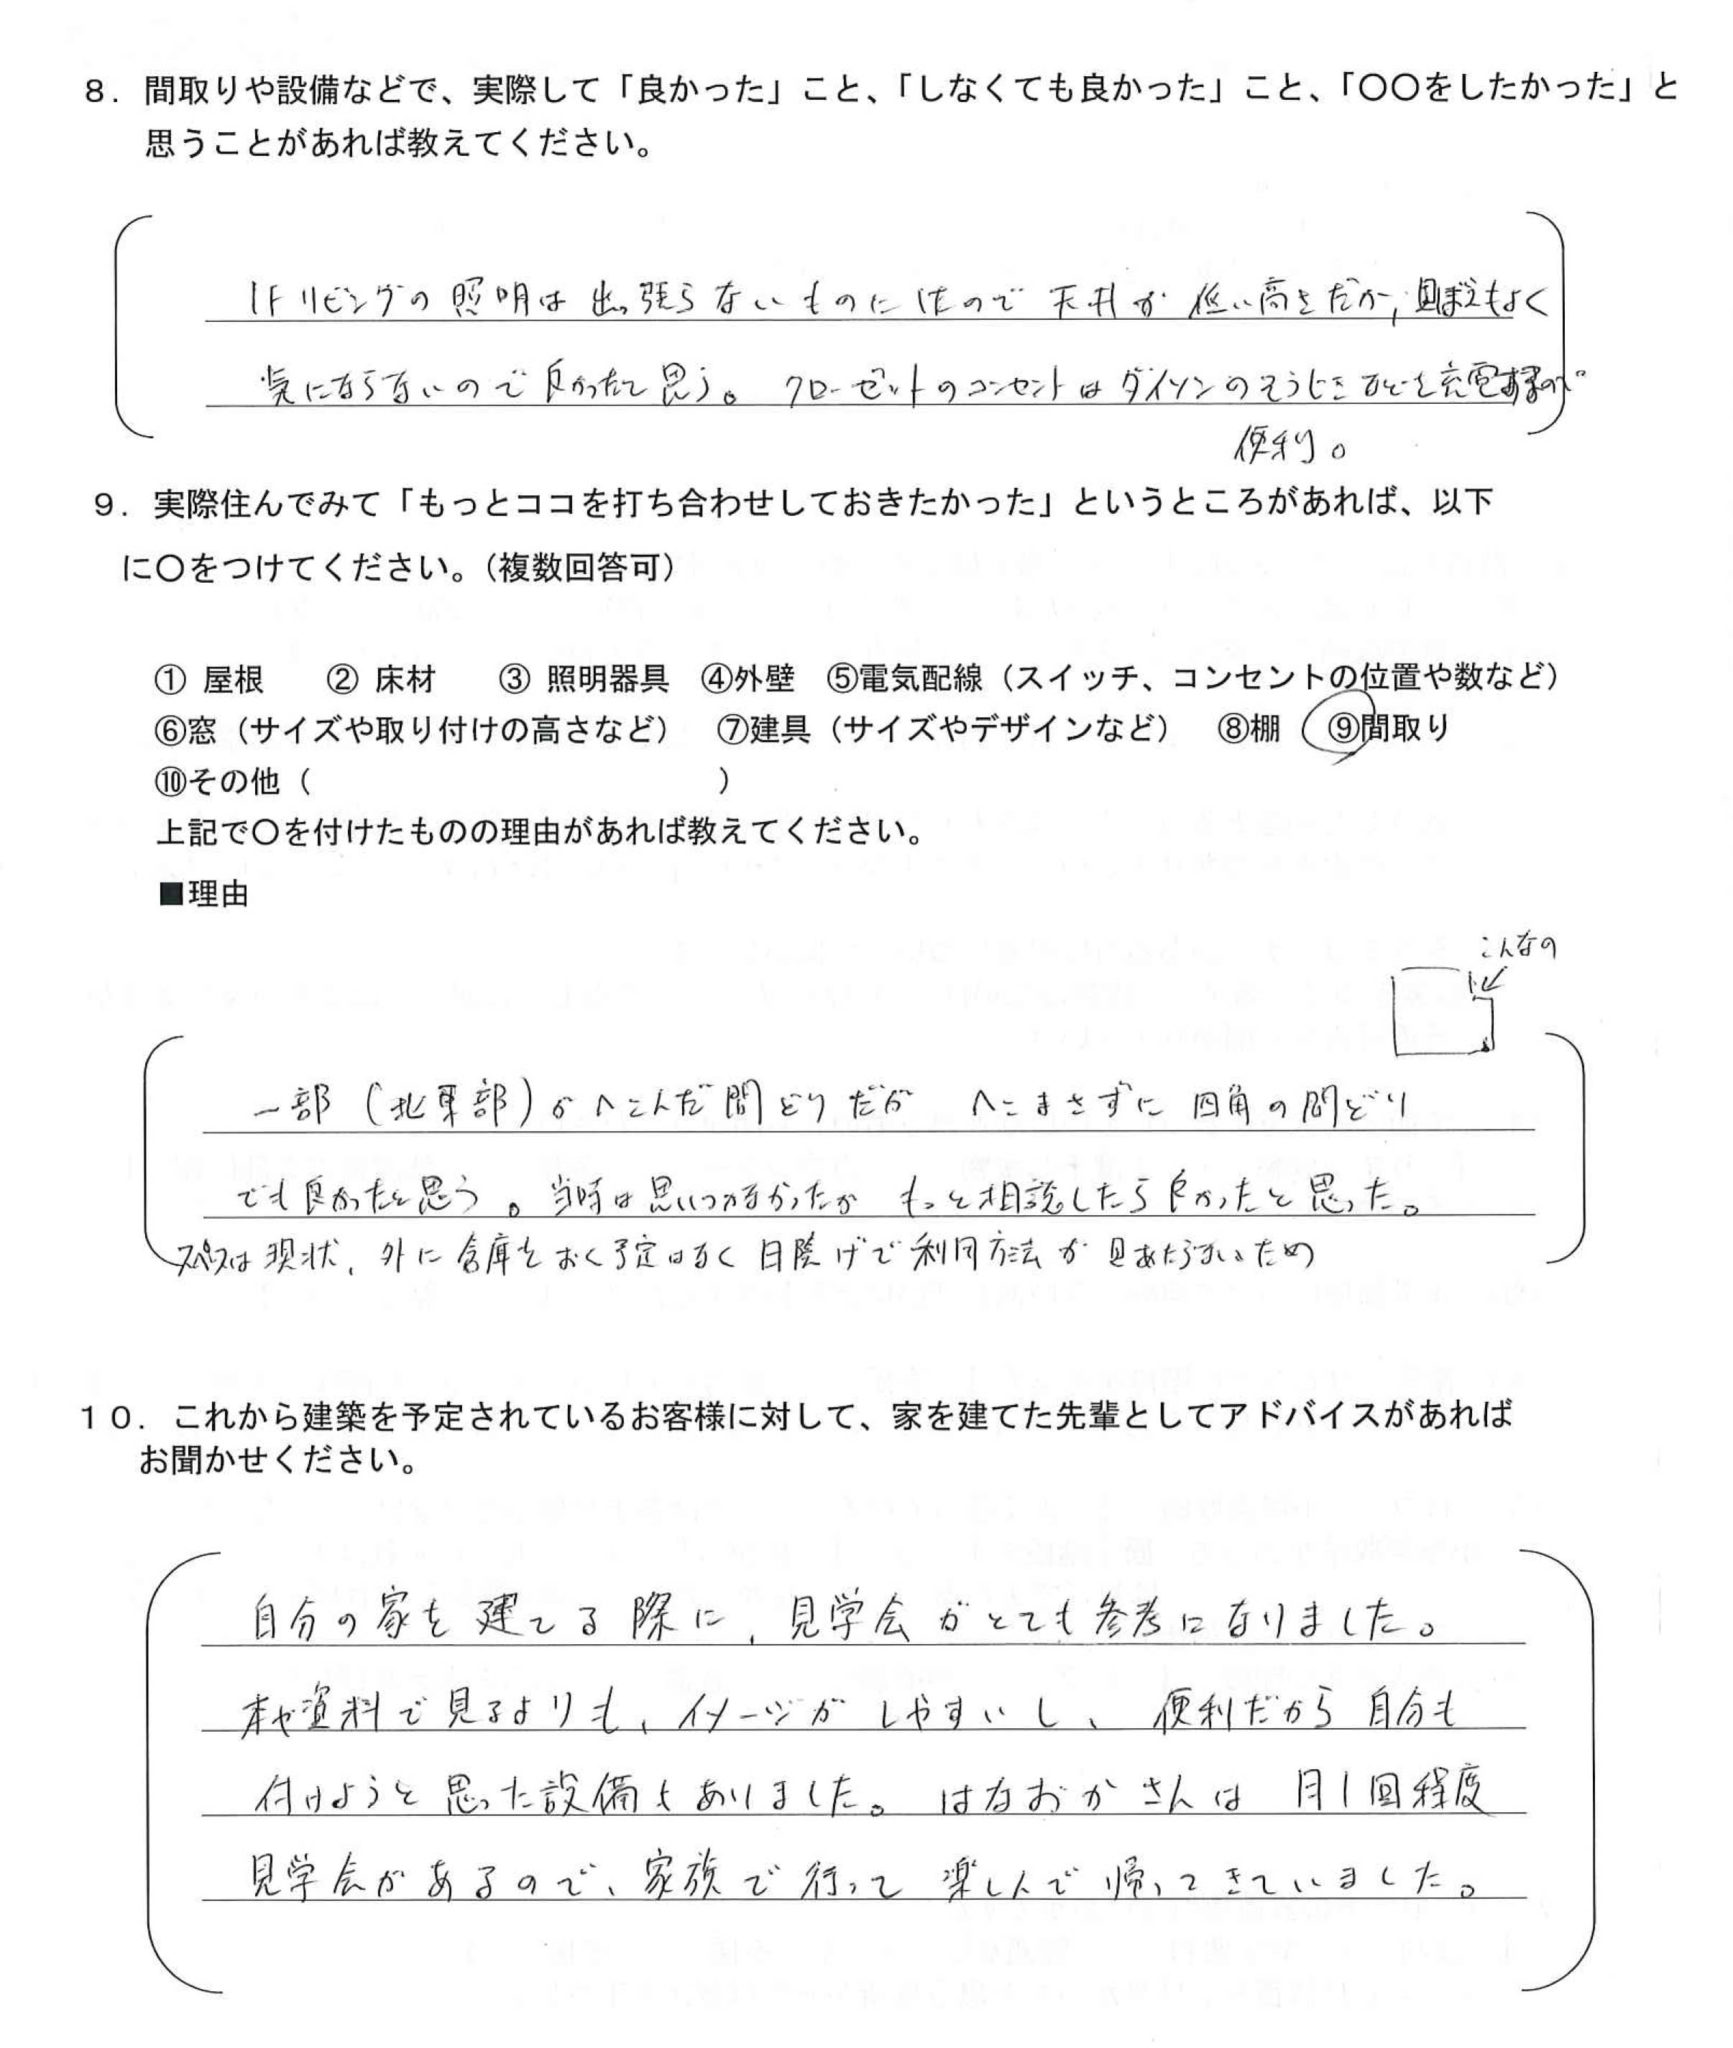 ８．間取りや設備などで、実際して「良かった」こと、「しなくても良かった」こと、「〇〇をしたかった」と
思うことがあれば教えてください。
1Fリビングの照明は出っ張らないものにしたので天井が低い高さだが、見ばえもよく
気にならないので良かったと思う。クローゼットのコンセントはダイソンのそうじきなどを充電するので
便利。
９．実際住んでみて「もっとココを打ち合わせしておきたかった」というところがあれば、以下
に〇をつけてください。（複数回答可）
① 屋根　② 床材　③ 照明器具　④外壁　⑤電気配線（スイッチ、コンセントの位置や数など）
⑥窓（サイズや取り付けの高さなど）　⑦建具（サイズやデザインなど）　⑧棚　⑨間取り
⑩その他（　　　）
上記で〇を付けたものの理由があれば教えてください。
■理由
こんなの
一部（北東部）がへこんだ間どりだが　へこまさずに四角の間どり
でも良かったと思う。当時は思いつかなかったが　もっと相談したら良かったと思った。
スペースは現状、外に倉庫をおく予定はなく日陰げで利用方法が見あたらないため
１０．これから建築を予定されているお客様に対して、家を建てた先輩としてアドバイスがあれば
お聞かせください。
自分の家を建てる際に、見学会がとても参考になりました。
本や資料で見るよりも、イメージがしやすいし、便利だから自分も
付けようと思った設備もありました。はなおかさんは月1回程度
見学会があるので、家族で行って楽しんで帰ってきていました。